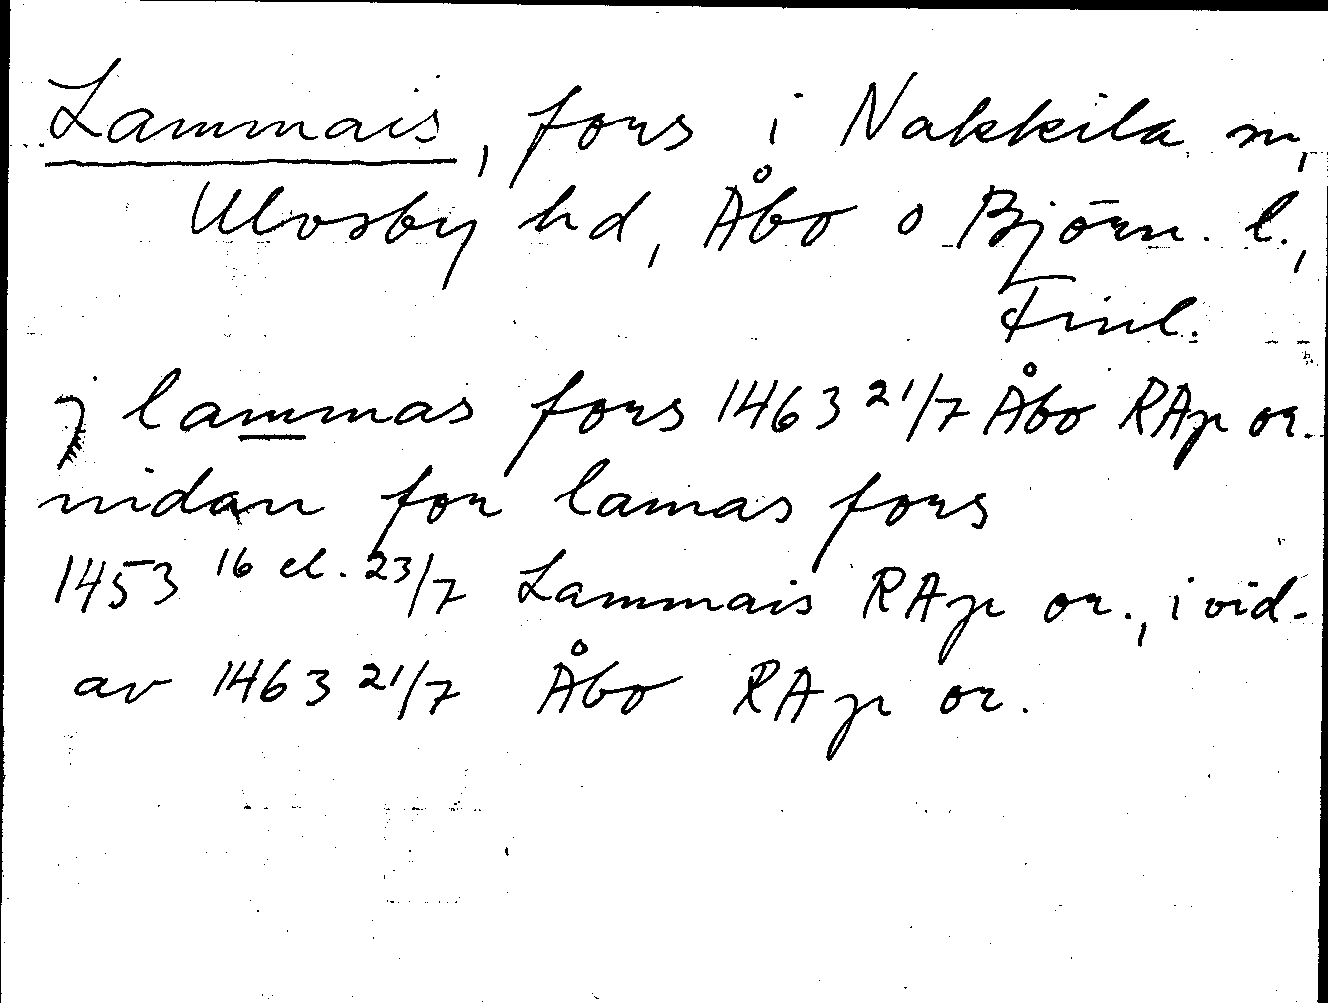 Lammais, fors i Nakkila sn,
Ulvsby hd, Åbo o Björn. l.,
Finl.
j lammas fors 1463 21/7 Åbo RAp or.
nidan for lamas fors
1453 16 el. 23/7 Lammais RAp or., i vid.
av 1463 21/7 Åbo RAp or.